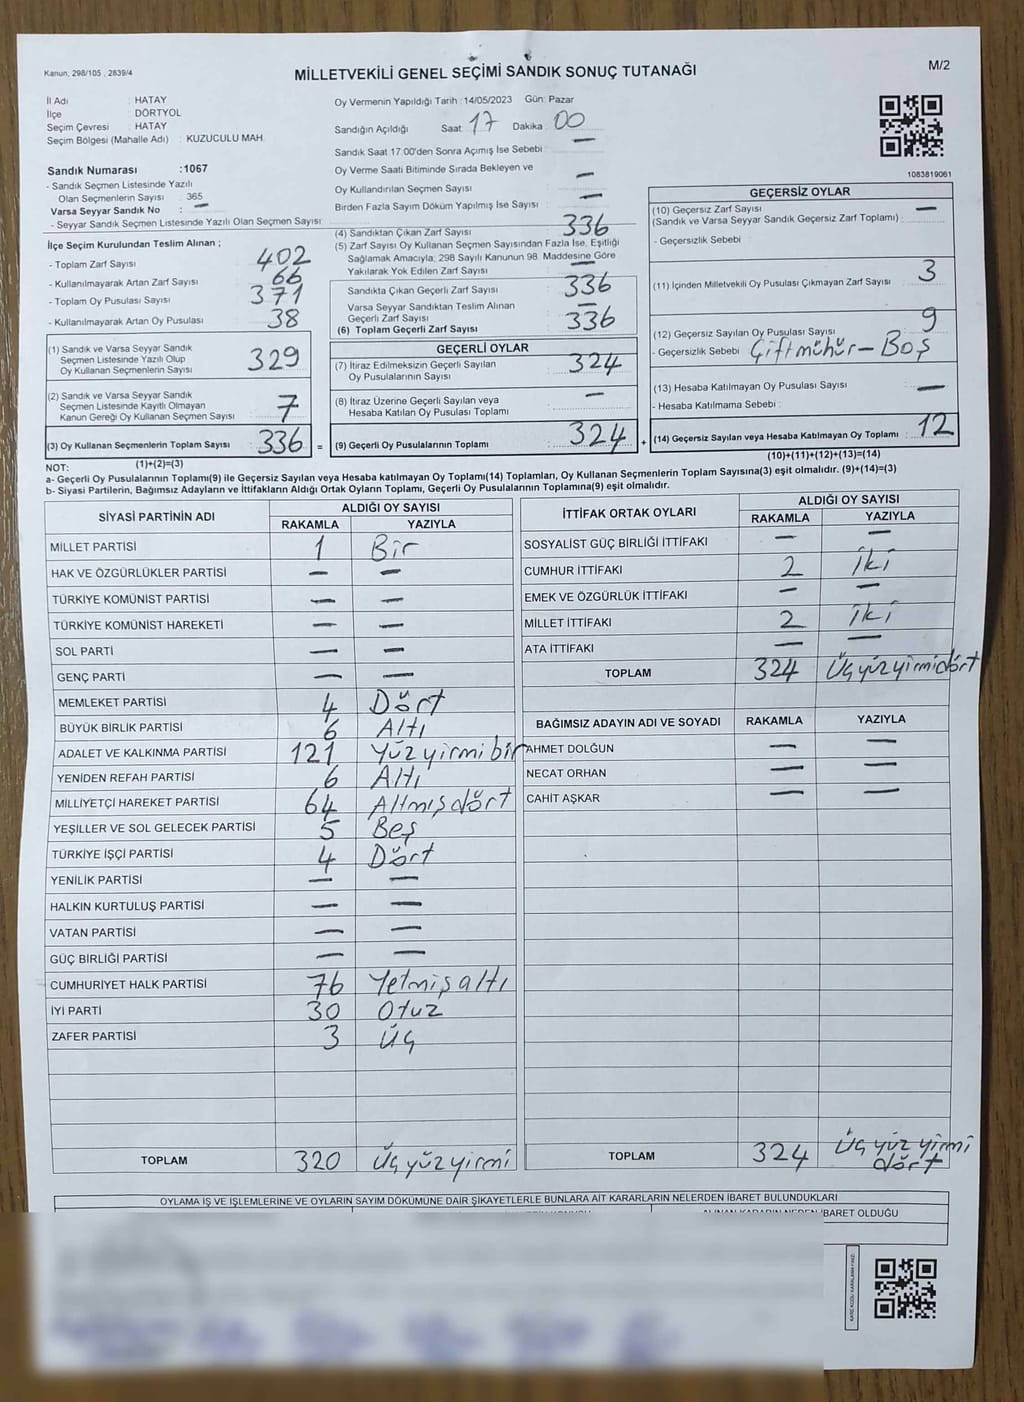 Kanun, 298/105 , 2839/4
MİLLETVEKİLİ GENEL SEÇİMİ SANDIK SONUÇ TUTANAĞI
M/2
İl Adı : HATAY
İlçe : DÖRTYOL
Seçim Çevresi : HATAY
Seçim Bölgesi (Mahalle Adı) : KUZUCULU MAH.
Sandık Numarası :1067
- Sandık Seçmen Listesinde Yazılı
Olan Seçmenlerin Sayısı : 365
Varsa Seyyar Sandık No : —
- Seyyar Sandık Seçmen Listesinde Yazılı Olan Seçmen Sayısı:
Oy Vermenin Yapıldığı Tarih :14/05/2023 Gün: Pazar
Sandığın Açıldığı Saat: 17 Dakika : 00
Sandık Saat 17.00'den Sonra Açımış İse Sebebi : —
Oy Verme Saati Bitiminde Sırada Bekleyen ve
Oy Kullandırılan Seçmen Sayısı : —
Birden Fazla Sayım Döküm Yapılmış İse Sayısı : —
1083819061
İlçe Seçim Kurulundan Teslim Alınan ;
- Toplam Zarf Sayısı : 402
- Kullanılmayarak Artan Zarf Sayısı : 66
- Toplam Oy Pusulası Sayısı : 371
- Kullanılmayarak Artan Oy Pusulası : 38
(1) Sandık ve Varsa Seyyar Sandık
Seçmen Listesinde Yazılı Olup
Oy Kullanan Seçmenlerin Sayısı : 329
(2) Sandık ve Varsa Seyyar Sandık
Seçmen Listesinde Kayıtlı Olmayan
Kanun Gereği Oy Kullanan Seçmen Sayısı : 7
(3) Oy Kullanan Seçmenlerin Toplam Sayısı : 336 =
(1)+(2)=(3)
(4) Sandıktan Çıkan Zarf Sayısı : 336
(5) Zarf Sayısı Oy Kullanan Seçmen Sayısından Fazla İse, Eşitliği
Sağlamak Amacıyla; 298 Sayılı Kanunun 98. Maddesine Göre
Yakılarak Yok Edilen Zarf Sayısı : —
Sandıkta Çıkan Geçerli Zarf Sayısı : 336
Varsa Seyyar Sandıktan Teslim Alınan
Geçerli Zarf Sayısı : —
(6) Toplam Geçerli Zarf Sayısı : 336
GEÇERLİ OYLAR
(7) İtiraz Edilmeksizin Geçerli Sayılan
Oy Pusulalarının Sayısı : 324
(8) İtiraz Üzerine Geçerli Sayılan veya
Hesaba Katılan Oy Pusulası Toplamı : —
(9) Geçerli Oy Pusulalarının Toplamı : 324 +
GEÇERSİZ OYLAR
(10) Geçersiz Zarf Sayısı
(Sandık ve Varsa Seyyar Sandık Geçersiz Zarf Toplamı) : —
- Geçersizlik Sebebi :
(11) İçinden Milletvekili Oy Pusulası Çıkmayan Zarf Sayısı : 3
(12) Geçersiz Sayılan Oy Pusulası Sayısı : 9
- Geçersizlik Sebebi : Çift mühür – Boş
(13) Hesaba Katılmayan Oy Pusulası Sayısı : —
- Hesaba Katılmama Sebebi :
(14) Geçersiz Sayılan veya Hesaba Katılmayan Oy Toplamı : 12
(10)+(11)+(12)+(13)=(14)
NOT:
a- Geçerli Oy Pusulalarının Toplamı(9) ile Geçersiz Sayılan veya Hesaba katılmayan Oy Toplamı(14) Toplamları, Oy Kullanan Seçmenlerin Toplam Sayısına(3) eşit olmalıdır. (9)+(14)=(3)
b- Siyasi Partilerin, Bağımsız Adayların ve İttifakların Aldığı Ortak Oyların Toplamı, Geçerli Oy Pusulalarının Toplamına(9) eşit olmalıdır.
SİYASİ PARTİNİN ADI ALDIĞI OY SAYISI
RAKAMLA YAZIYLA
MİLLET PARTİSİ 1 Bir
HAK VE ÖZGÜRLÜKLER PARTİSİ — —
TÜRKİYE KOMÜNİST PARTİSİ — —
TÜRKİYE KOMÜNİST HAREKETİ — —
SOL PARTİ — —
GENÇ PARTİ — —
MEMLEKET PARTİSİ 4 Dört
BÜYÜK BİRLİK PARTİSİ 6 Altı
ADALET VE KALKINMA PARTİSİ 121 Yüz yirmi bir
YENİDEN REFAH PARTİSİ 6 Altı
MİLLİYETÇİ HAREKET PARTİSİ 64 Altmış dört
YEŞİLLER VE SOL GELECEK PARTİSİ 5 Beş
TÜRKİYE İŞÇİ PARTİSİ 4 Dört
YENİLİK PARTİSİ — —
HALKIN KURTULUŞ PARTİSİ — —
VATAN PARTİSİ — —
GÜÇ BİRLİĞİ PARTİSİ — —
CUMHURİYET HALK PARTİSİ 76 Yetmiş altı
İYİ PARTİ 30 Otuz
ZAFER PARTİSİ 3 Üç
TOPLAM 320 Üç yüz yirmi
İTTİFAK ORTAK OYLARI ALDIĞI OY SAYISI
RAKAMLA YAZIYLA
SOSYALİST GÜÇ BİRLİĞİ İTTİFAKI — —
CUMHUR İTTİFAKI 2 İki
EMEK VE ÖZGÜRLÜK İTTİFAKI — —
MİLLET İTTİFAKI 2 İki
ATA İTTİFAKI — —
TOPLAM 324 Üç yüz yirmi dört
BAĞIMSIZ ADAYIN ADI VE SOYADI RAKAMLA YAZIYLA
AHMET DOLĞUN — —
NECAT ORHAN — —
CAHİT AŞKAR — —
TOPLAM 324 Üç yüz yirmi
dört
OYLAMA İŞ VE İŞLEMLERİNE VE OYLARIN SAYIM DÖKÜMÜNE DAİR ŞİKAYETLERLE BUNLARA AİT KARARLARIN NELERDEN İBARET BULUNDUKLARI
İBARET OLDUĞU